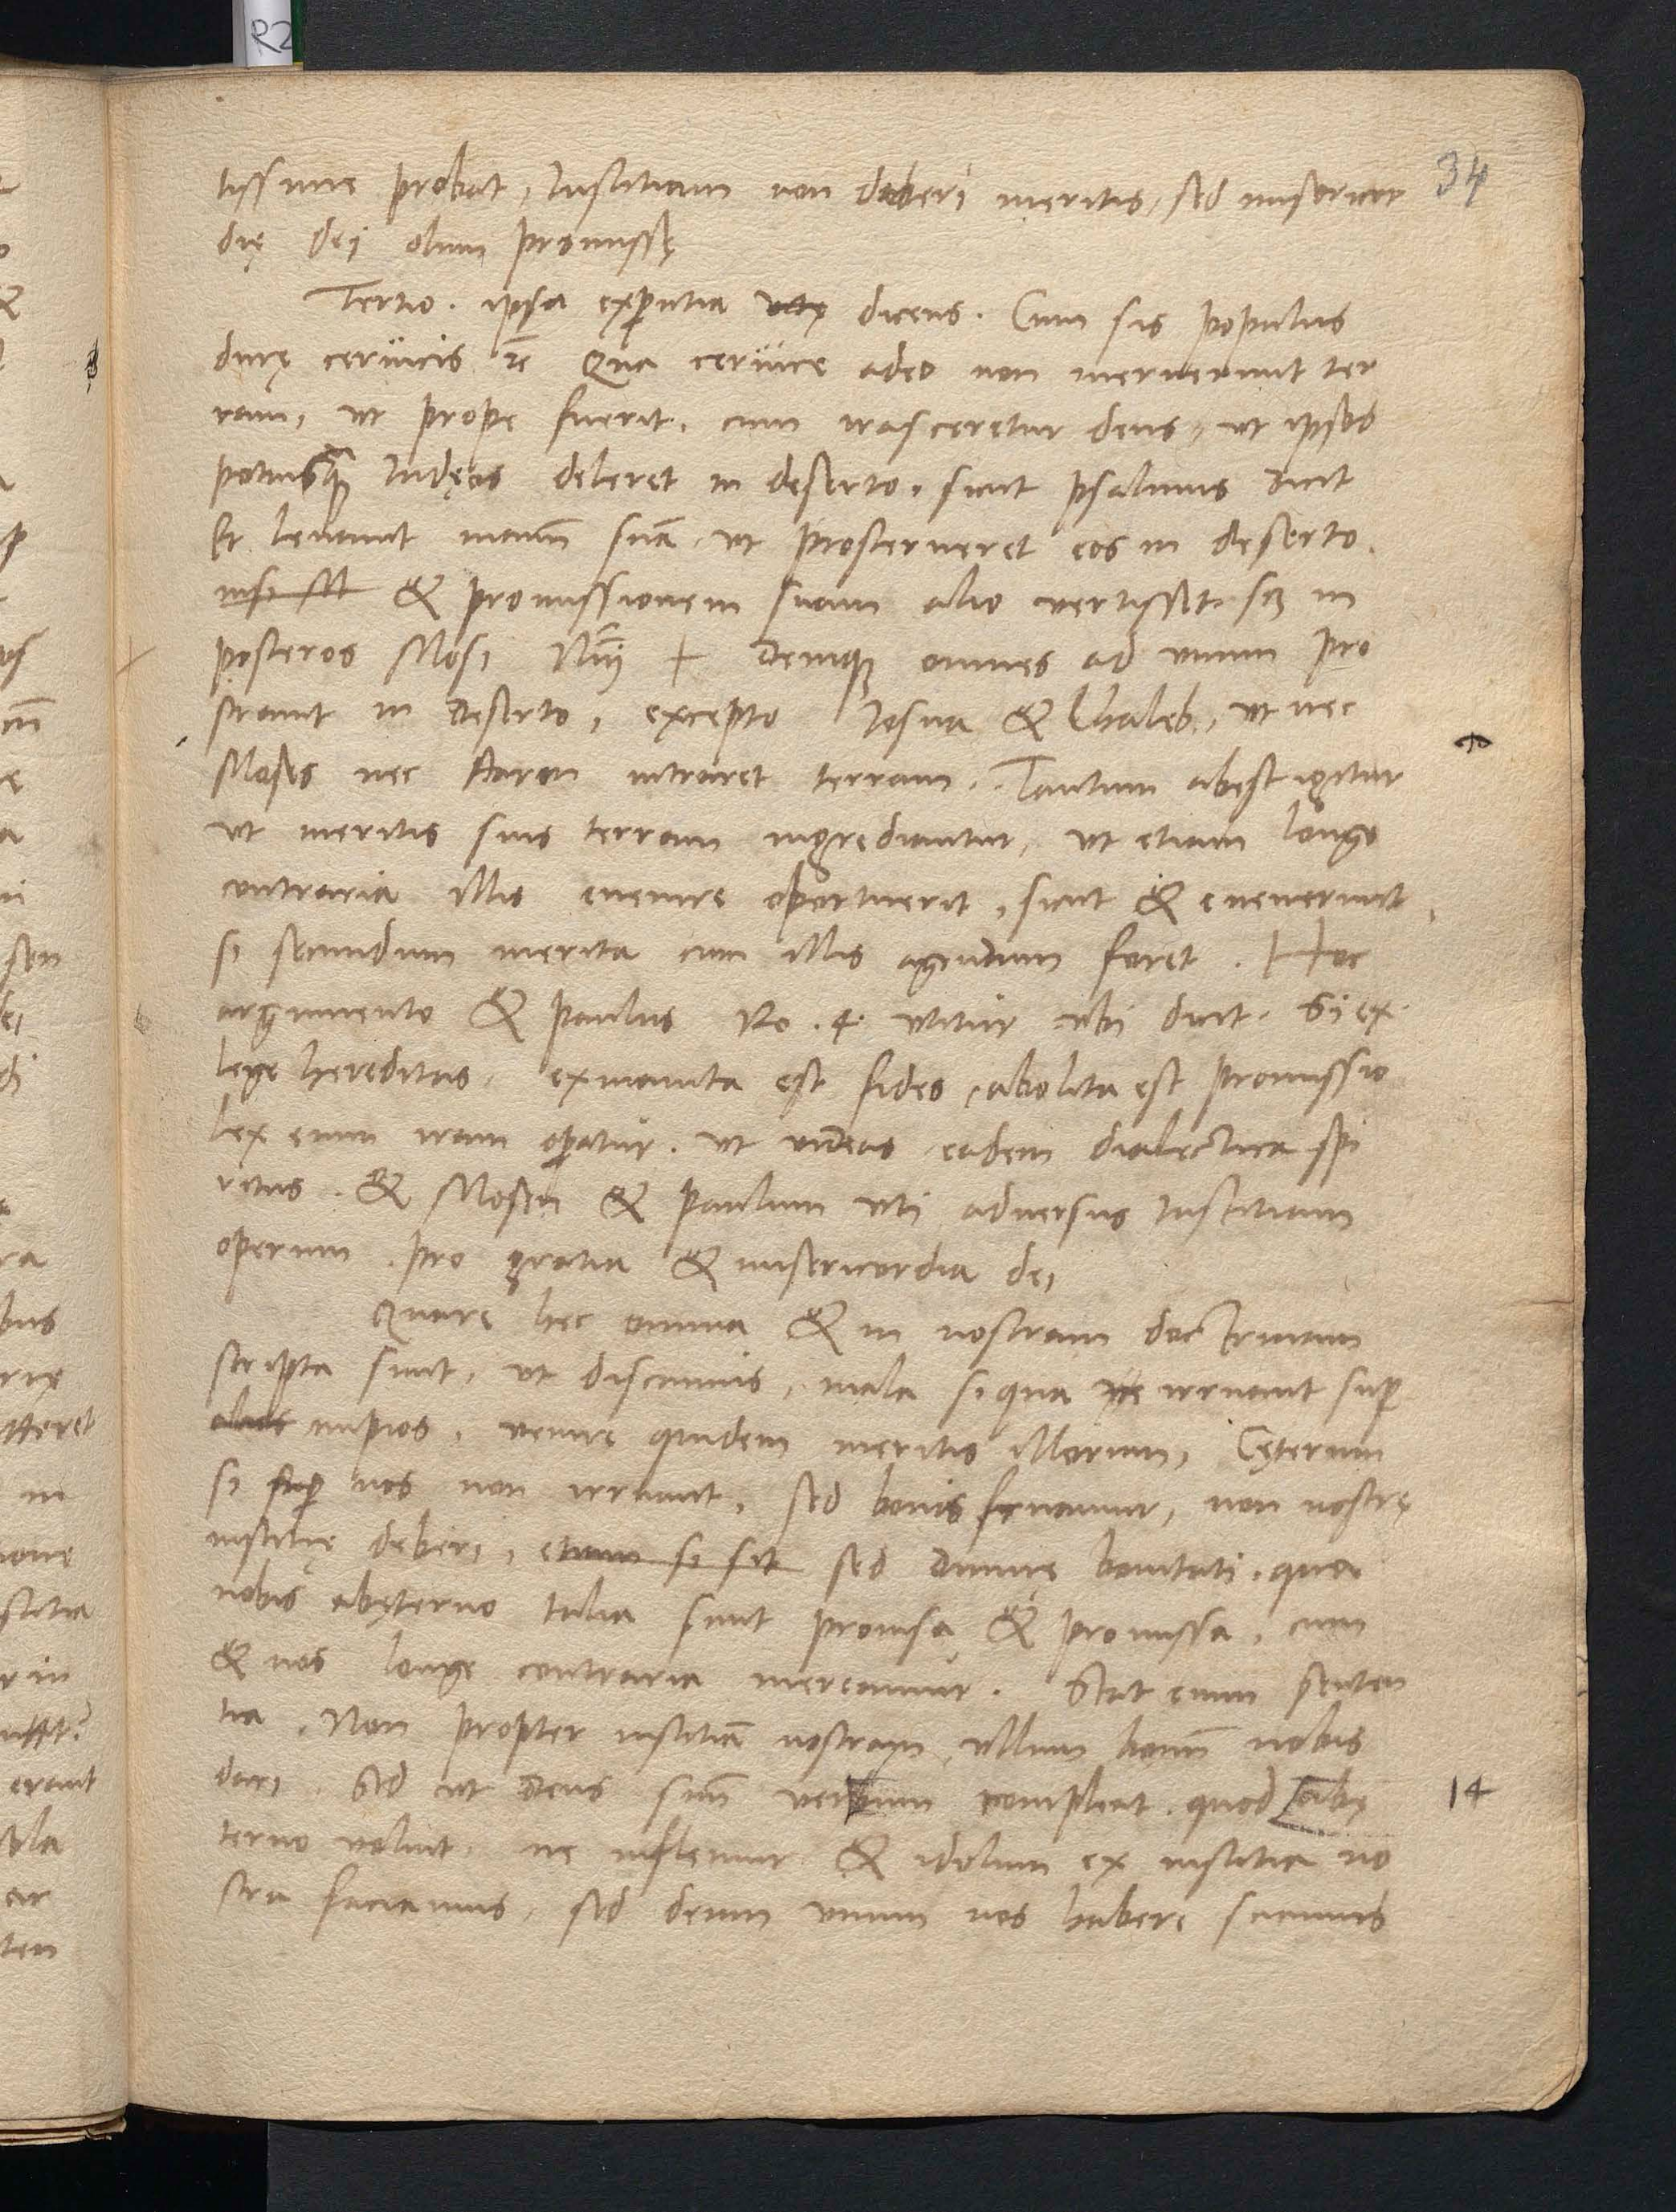 R2
34
tissime probat, Iustitiam non deberi meritis, sed misericor
dię dei olim promissę
Tertio. ipsa expẽntia dicens. Cum sis populus
durę ceruicis rc̃ Qua ceruice adeo non meruerunt ter
ram, ut prope fuerit, cum irasceretur deus, ut ipsos
potiusq̃ Iudęos deleret in deserto, sicut psalmus dicit
Et leuauit manũ suã, ut prosterneret eos in deserto.
nisi & promissionem suam alio vertisset. scʒ in
posteros Mosi Nũ + Deniqʒ omnes ad vnum pro
strauit in deserto, excepto Iosua & Chaleb, ut nec
Moses nec Aaron intraret terram. Tantum abest igitur
ut meritis suis terram ingrediantur, ut etiam longe
contraria illis euenire oportuerit, sicut & euenerunt,
si secundum merita cum illis agendum foret. Hoc
argumento & Paulus Ro. 4. vtitur vbi dicit. Si ex
lege hereditas, exinanita est fides, abolita est promissio
lex enim iram opatur. ut videas eadem dialectica spi
ritus. & Mosen & Paulum vti aduersus Iustitiam
operum. pro gratia & misericordia dei
Quare hec omnia & in nostram doctrinam
scripta sunt, ut discamus, mala si qua irruant sup
alios impios, venire quidem meritis illorum, Cęterum
si sup nos non irruunt, sed bonis seruamur, non nostrę
iustitię deberi, etiam si sit sed diuinę bonitati, qua
nobis abęterno talia sunt prouisa & promissa, cum
& nos longe contraria mereamur. Stat enim senten
tia. Non propter iustitiã nostram vllum bonũ nobis
dari. Sed ut Deus suũ verbum compleat. quod [abę
14
terno voluit, ne inflemur & idolum ex iustitia no
stra faciamus, sed deum vnum nos habere sciamus